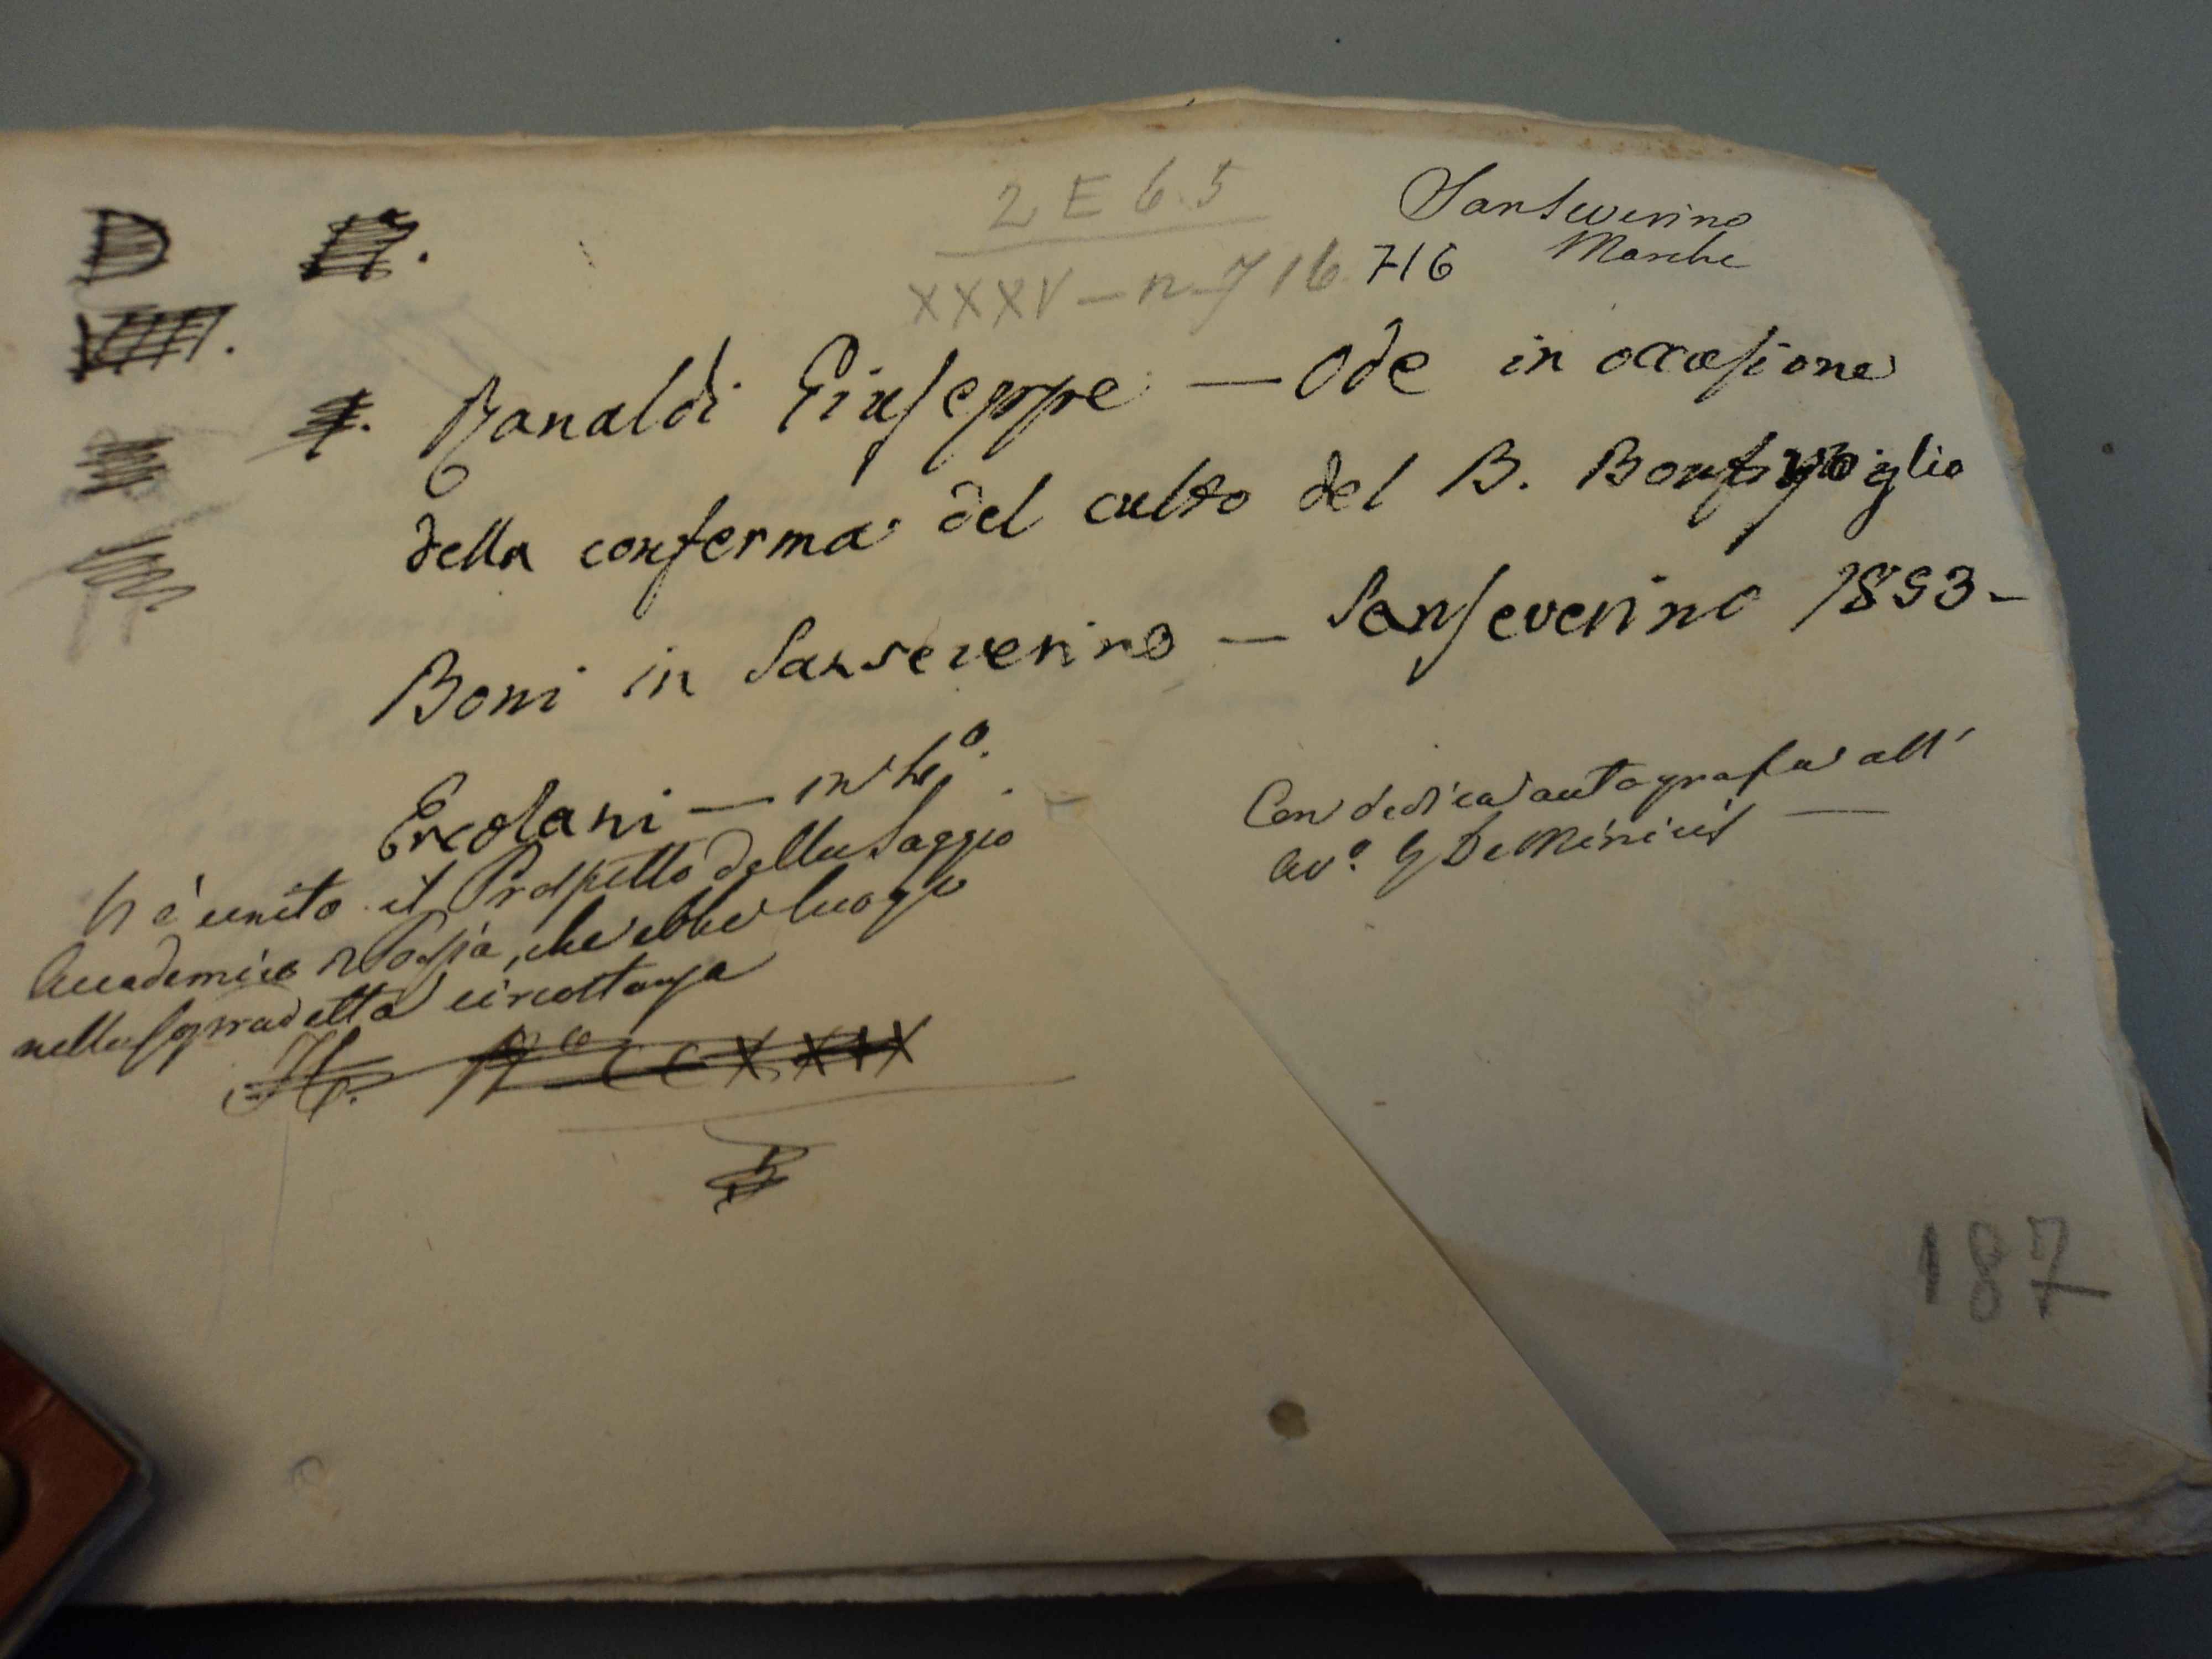 2 E 6.5
XXXV - n. 716
716
Sanseverino
Marche
D
Ranaldi Giuseppe — Ode in occasione
della conferma del culto del B.
Boni in Sanseverino — Sanseverino 1853 -
Ercolani — in
Con dedica autografa all'
Avº. G De Minicis —
Vi è unito il Prospetto della Saggio
Accademico Poesia, che ebbe luogo
nella sopradetta circostanza
187